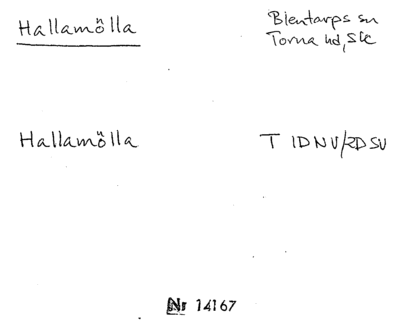 Hallamölla
Bjentarps sn
Torna hd, Sk
Hallamölla
T 1D NV/2D SV
Nr 14167